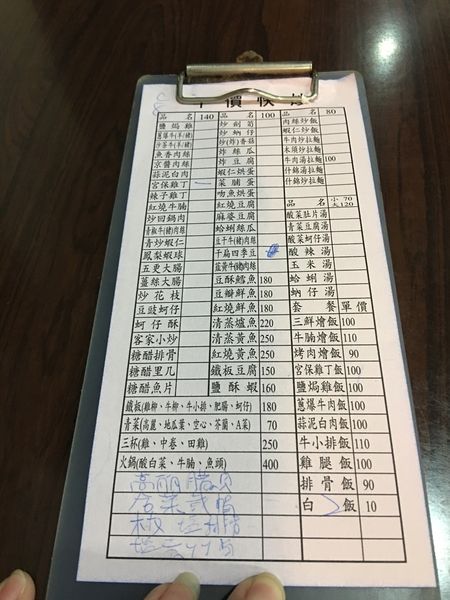 平價快炒
品 名 140
鹽焗雞
蔥爆牛(羊)肉
沙茶牛(羊)肉
魚香肉絲
京醬肉絲
蒜泥白肉
宮保雞丁
辣子雞丁
紅燒牛腩
炒回鍋肉
青椒牛(豬)肉絲
青炒蝦仁
鳳梨蝦球
五更大腸
薑絲大腸
炒花枝
豆豉蚵仔
蚵仔酥
客家小炒
糖醋排骨
糖醋里几
糖醋魚片
品 名 100
炒劍筍
炒蚋仔
炒(炸)香菇
炸絲瓜
炸豆腐
蝦仁烘蛋
菜脯蛋
吻魚烘蛋
紅燒豆腐
麻婆豆腐
蛤蜊絲瓜
豆干牛(豬)肉絲
干扁四季豆
韮黃牛(豬)肉絲
豆酥鱈魚 180
豆瓣鮮魚 180
紅燒鮮魚 180
清蒸鱸魚 220
清蒸黃魚 250
紅燒黃魚 250
鐵板豆腐 150
鹽酥蝦 160
品 名 80
肉絲炒飯
蝦仁炒飯
牛肉炒拉麵
木須炒拉麵
牛肉湯拉麵 100
什錦湯拉麵
什錦炒拉麵
品 名 小 70 大 120
酸菜肚片湯
青菜豆腐湯
酸菜蚵仔湯
酸辣湯
玉米湯
蛤蜊湯
蚋仔湯
套餐 單價
三鮮燴飯 100
牛腩燴飯 110
烤肉燴飯 90
宮保雞丁飯 100
鹽焗雞飯 100
蔥爆牛肉飯 100
蒜泥白肉飯 100
牛小排飯 110
雞腿飯 100
排骨飯 90
白飯 10
鐵板(雞柳、牛柳、牛小排、肥腸、蚵仔) 180
青菜(高麗、地瓜葉、空心、芥蘭、A菜) 70
三杯(雞、中卷、田雞) 250
火鍋(酸白菜、牛腩、魚頭) 400